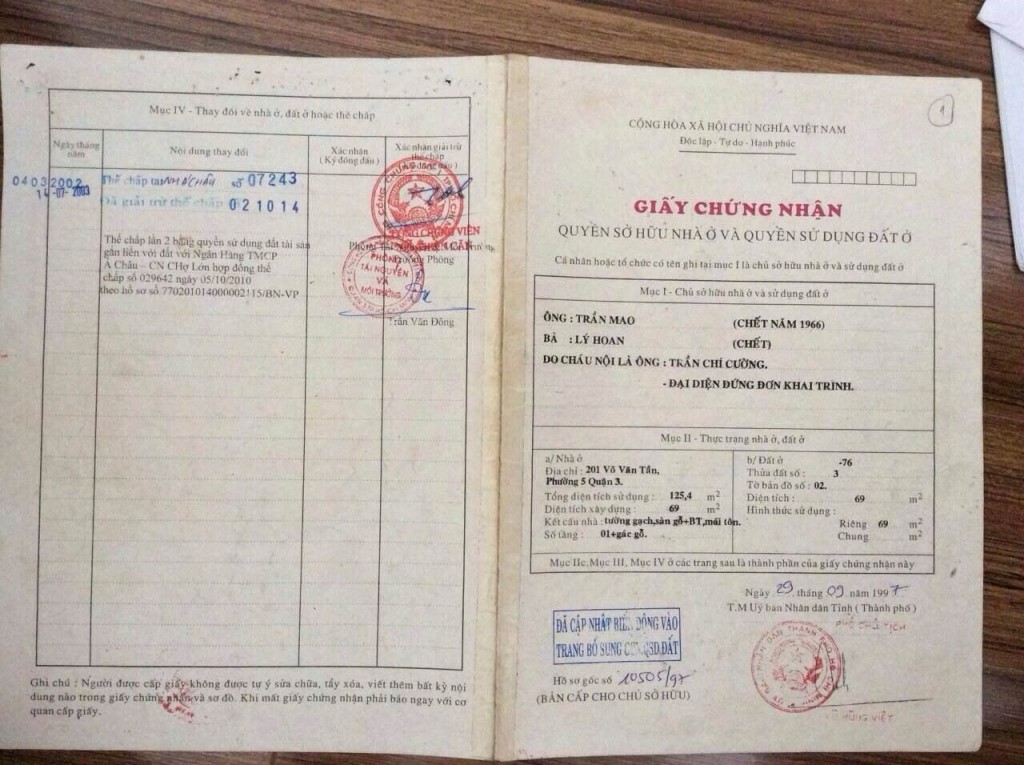 Mục IV - Thay đổi về nhà ở, đất ở hoặc thế chấp
Ngày tháng năm
Nội dung thay đổi
Xác nhận
( Ký đóng dấu )
Xác nhận giải trừ
thế chấp
04 03 2002 Thế chấp tại NH Á CHÂU số 07243
14-07-2003 Đã giải trừ thế chấp 021014
Thế chấp lần 2 bằng quyền sử dụng đất tài sản
gắn liền với đất với Ngân Hàng TMCP
Á Châu – CN CHợ Lớn hợp đồng thế
chấp số 029642 ngày 05/10/2010
theo hồ sơ số 770201014000002115/BN-VP
Trưởng Phòng
PHÒNG
TÀI NGUYÊN
VÀ
MÔI TRƯỜNG
Trần Văn Đông
Ghi chú : Người được cấp giấy không được tự ý sửa chữa, tẩy xóa, viết thêm bất kỳ nội
dung nào trong giấy chứng nhận và sơ đồ. Khi mất giấy chứng nhận phải báo ngay với cơ
quan cấp giấy.
1
CỘNG HÒA XÃ HỘI CHỦ NGHĨA VIỆT NAM
Độc lập - Tự do - Hạnh phúc
GIẤY CHỨNG NHẬN
QUYỀN SỞ HỮU NHÀ Ở VÀ QUYỀN SỬ DỤNG ĐẤT Ở
Cá nhân hoặc tổ chức có tên ghi tại mục I là chủ sở hữu nhà ở và sử dụng đất ở
Mục I - Chủ sở hữu nhà ở và sử dụng đất ở
ÔNG : TRẦN MAO (CHẾT NĂM 1966)
BÀ : LÝ HOAN (CHẾT)
DO CHÁU NỘI LÀ ÔNG : TRẦN CHÍ CƯỜNG.
- ĐẠI DIỆN ĐỨNG ĐƠN KHAI TRÌNH.
Mục II - Thực trạng nhà ở, đất ở
a/ Nhà ở
Địa chỉ : 201 Võ Văn Tần,
Phường 5 Quận 3.
Tổng diện tích sử dụng : 125,4 m2
Diện tích xây dựng : 69 m2
Kết cấu nhà : tường gạch,sàn gỗ+BT,mái tôn.
Số tầng : 01+gác gỗ.
b/ Đất ở -76
Thửa đất số : 3
Tờ bản đồ số : 02.
Diện tích : 69 m2
Hình thức sử dụng :
Riêng 69 m2
Chung m2
Mục IIc, Mục III, Mục IV ở các trang sau là thành phần của giấy chứng nhận này
Ngày 29 tháng 09 năm 1997
T.M Uỷ ban Nhân dân Tỉnh ( Thành phố )
PHÓ CHỦ TỊCH
ĐÃ CẬP NHẬT BIẾN ĐỘNG VÀO
TRANG BỔ SUNG
Hồ sơ gốc số 10505/97
(BẢN CẤP CHO CHỦ SỞ HỮU)
VŨ HÙNG VIỆT